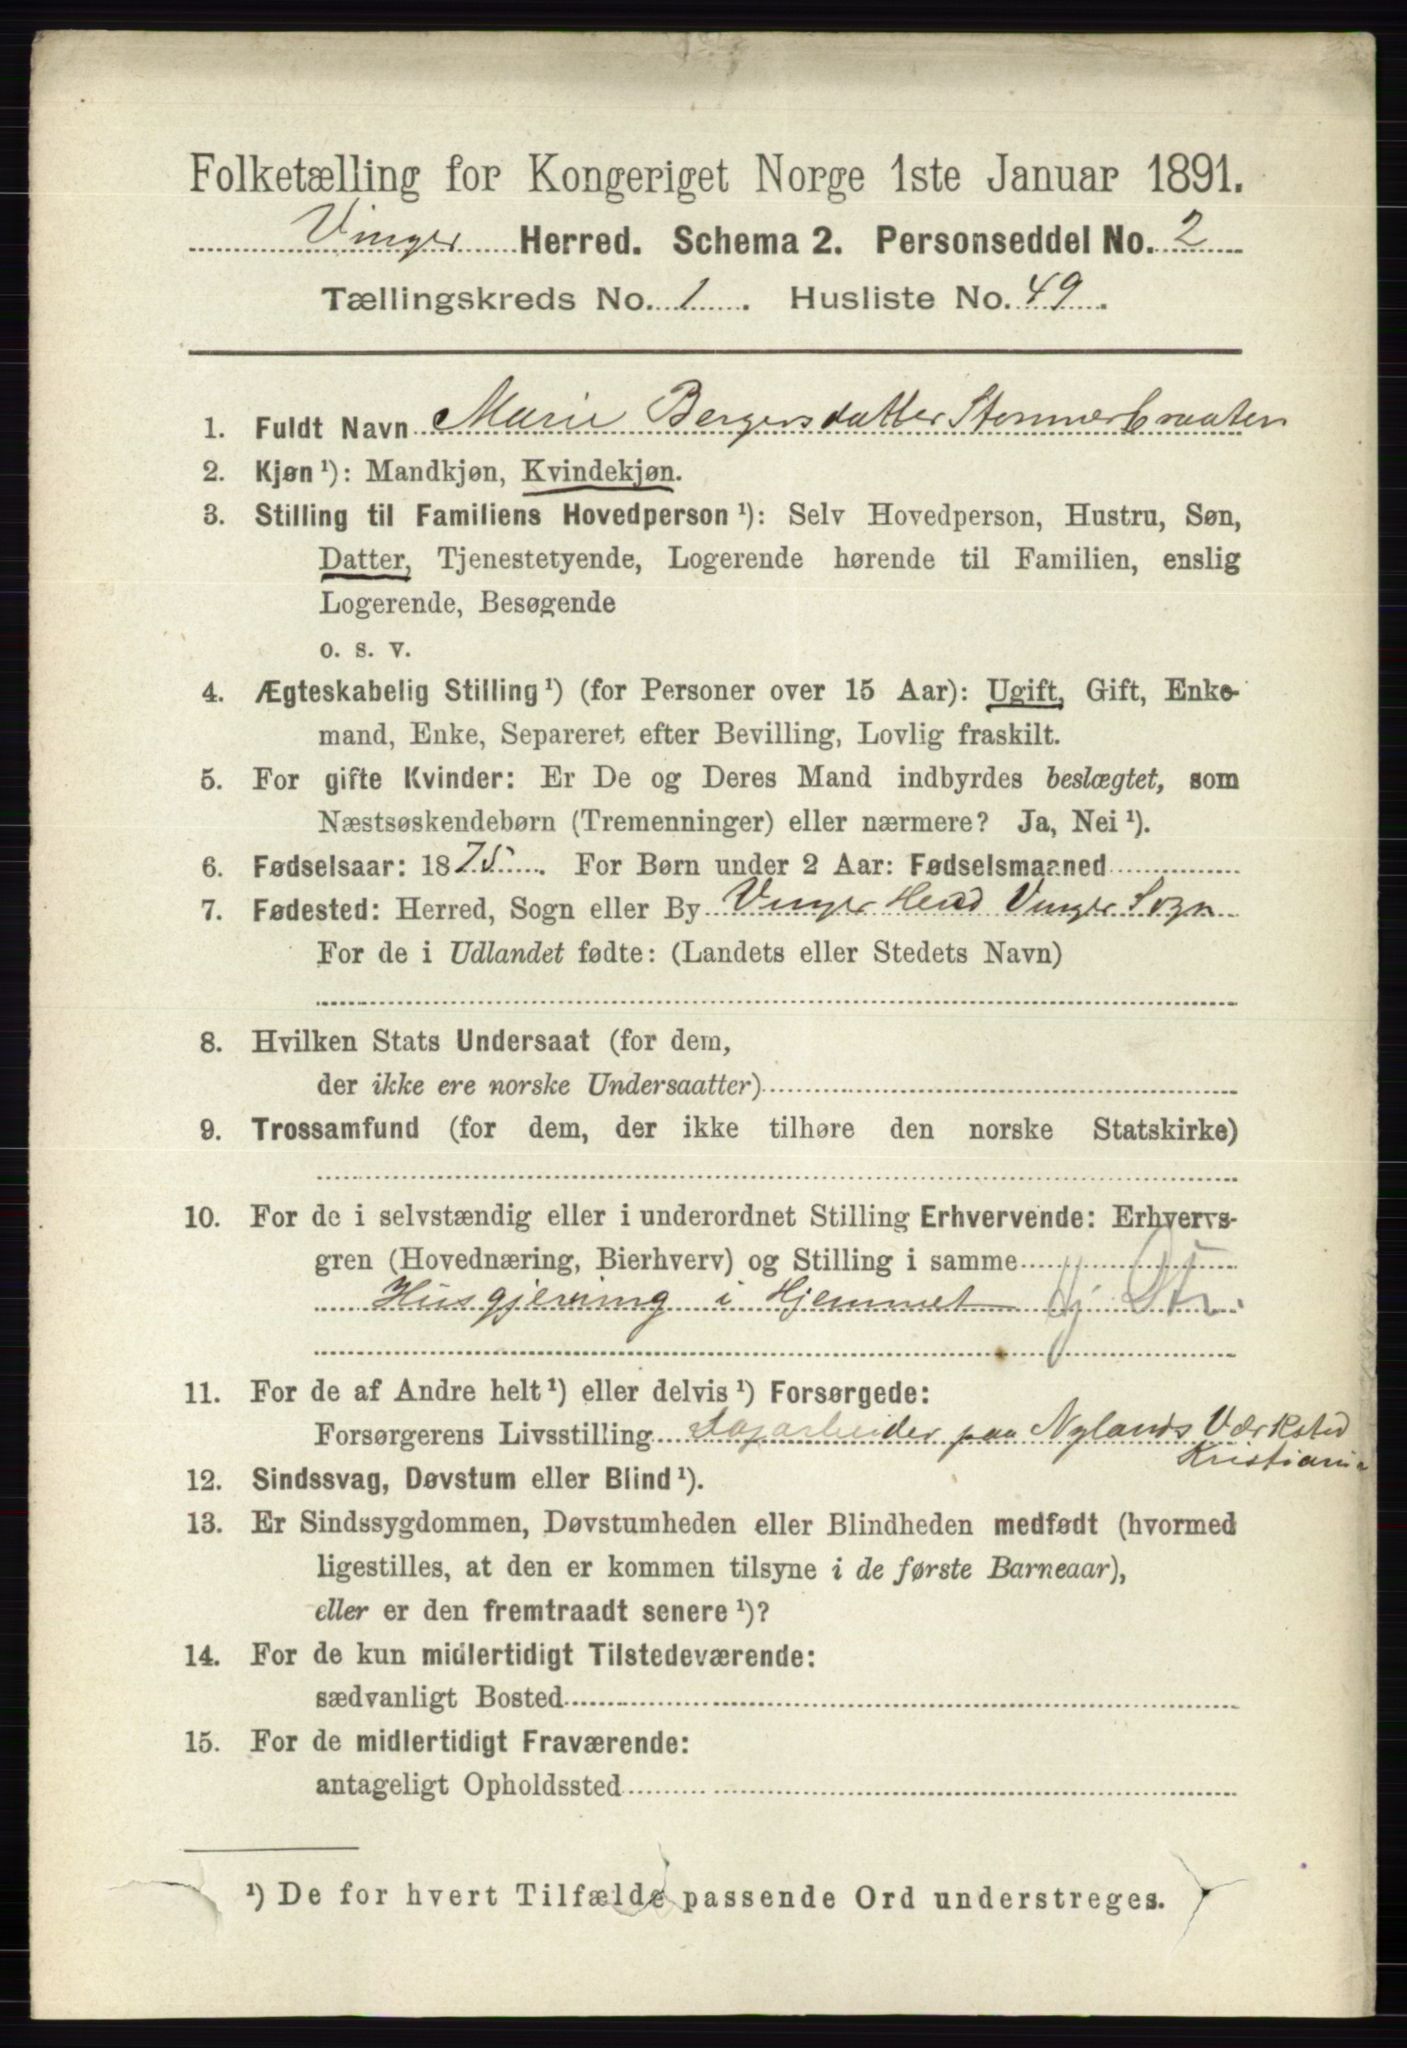 Folketælling for Kongeriget Norge 1ste Januar 1891.
Vinger Herred. Schema 2. Personseddel No. 2
Tællingskreds No. 1. Husliste No. 49.
1. Fuldt Navn Marie Bergersdatter Stommerbraaten
2. Kjøn ¹): Mandkjøn, Kvindekjøn.
3. Stilling til Familiens Hovedperson ¹): Selv Hovedperson, Hustru, Søn,
Datter, Tjenestetyende, Logerende hørende til Familien, enslig
Logerende, Besøgende
o. s. v.
4. Ægteskabelig Stilling ¹) (for Personer over 15 Aar): Ugift, Gift, Enke-
mand, Enke, Separeret efter Bevilling, Lovlig fraskilt.
5. For gifte Kvinder: Er De og Deres Mand indbyrdes beslægtet, som
Næstsøskendebørn (Tremenninger) eller nærmere? Ja, Nei ¹).
6. Fødselsaar: 1875. For Børn under 2 Aar: Fødselsmaaned
7. Fødested: Herred, Sogn eller By Vinger Herd Vinger Sogn
For de i Udlandet fødte: (Landets eller Stedets Navn)
8. Hvilken Stats Undersaat (for dem,
der ikke ere norske Undersaatter)
9. Trossamfund (for dem, der ikke tilhøre den norske Statskirke)
10. For de i selvstændig eller i underordnet Stilling Erhvervende: Erhvervs-
gren (Hovednæring, Bierhverv) og Stilling i samme
Husgjerning i Hjemmet
11. For de af Andre helt ¹) eller delvis ¹) Forsørgede:
Forsørgerens Livsstilling paa Nylands Værksted
Kristiania
12. Sindssvag, Døvstum eller Blind ¹).
13. Er Sindssygdommen, Døvstumheden eller Blindheden medfødt (hvormed
ligestilles, at den er kommen tilsyne i de første Barneaar),
eller er den fremtraadt senere ¹)?
14. For de kun midlertidigt Tilstedeværende:
sædvanligt Bosted
15. For de midlertidigt Fraværende:
antageligt Opholdssted
¹) De for hvert Tilfælde passende Ord understreges.